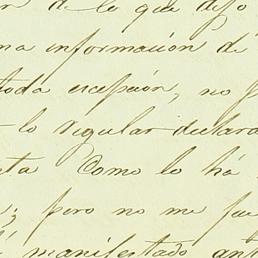 n de lo que dejo
na informacion de
toda excepcion, no
lo regular declara
ta Como lo há
; pero no me fue
manifestado ant